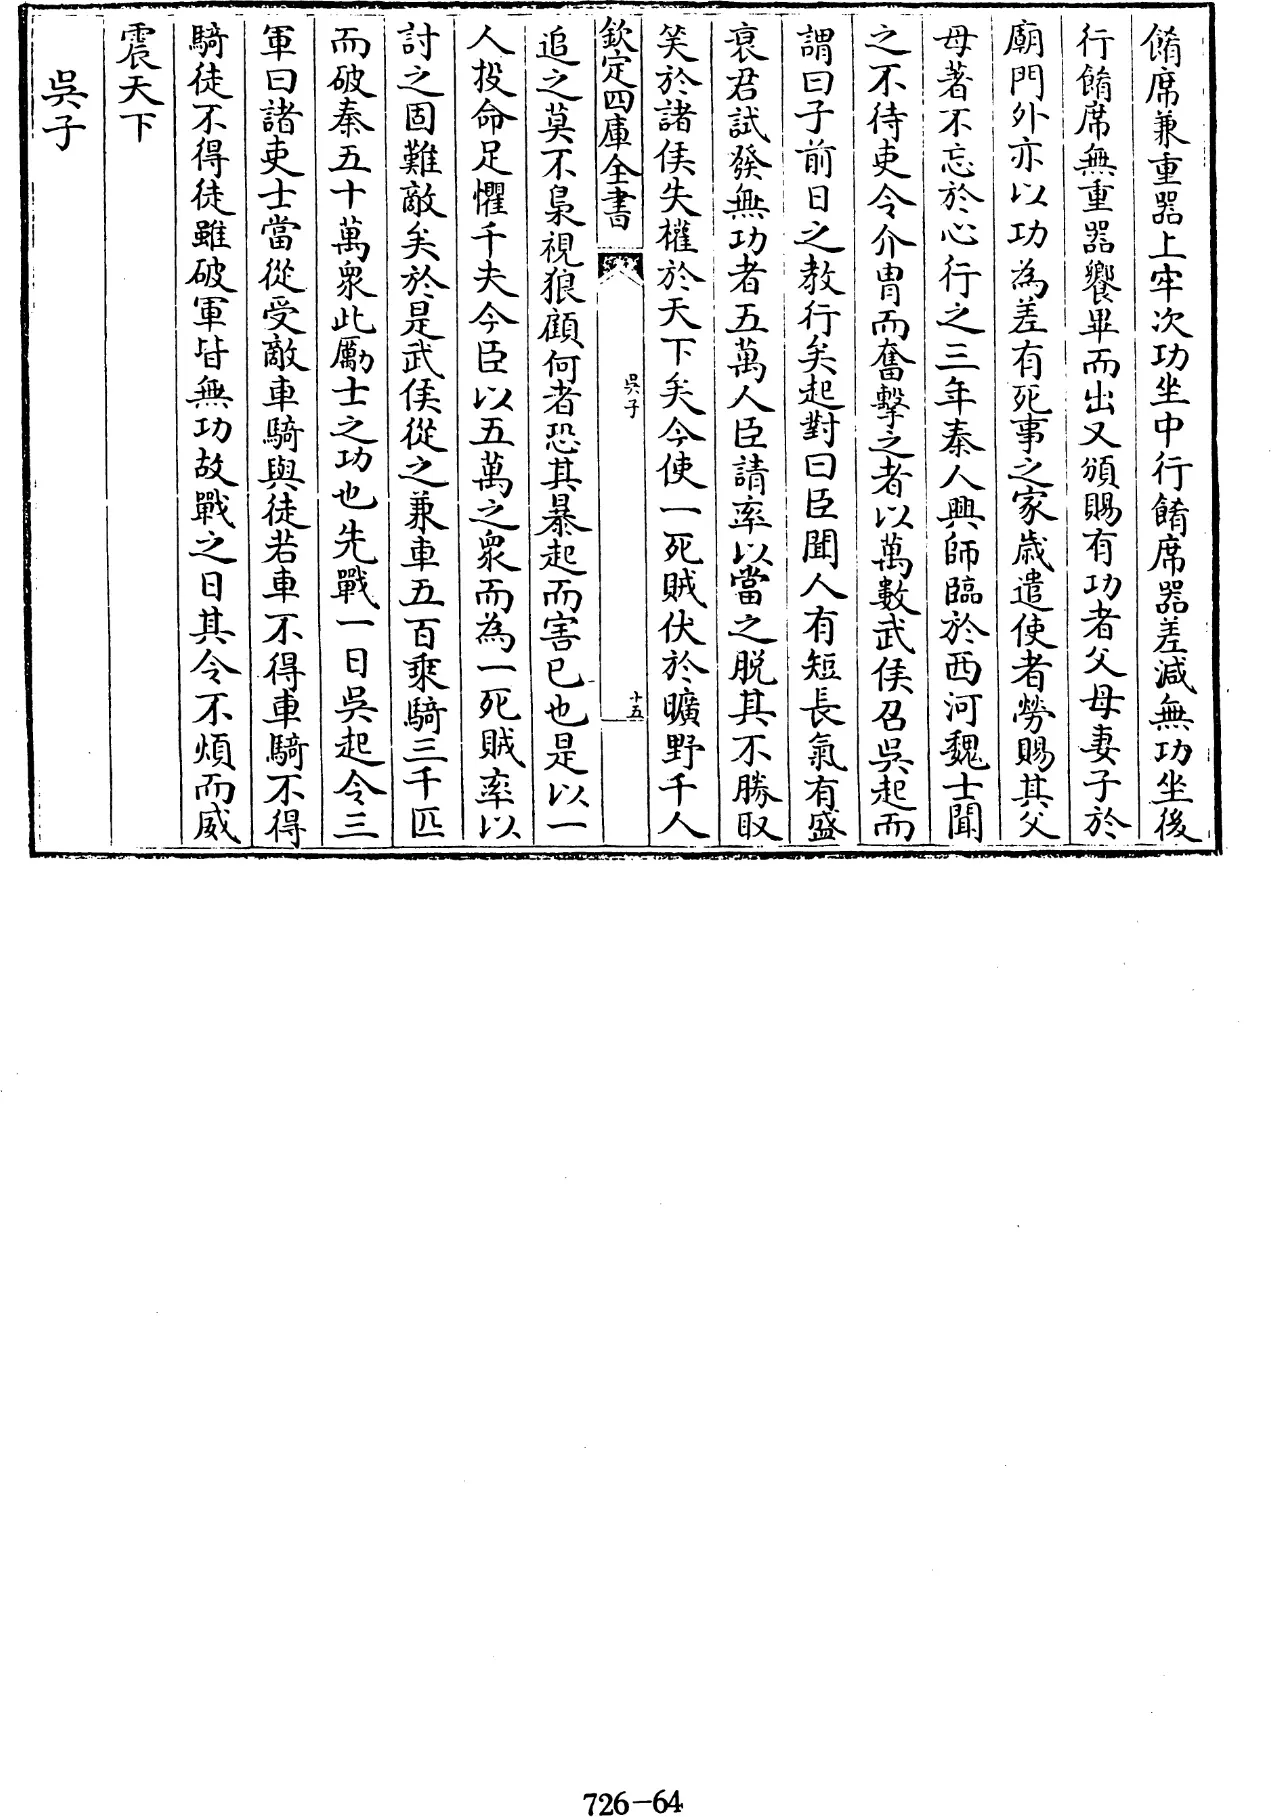 餚席兼重器上牢次功坐中行餚席器差減無功坐後
行餚席無重器饗畢而出又頒賜有功者父母妻子於
廟門外亦以功為差有死事之家歲遣使者勞賜其父
母著不忘於心行之三年秦人興師臨於西河魏士聞
之不待吏令介胄而奮擊之者以萬數武侯召吳起而
謂曰子前日之教行矣起對曰臣聞人有短長氣有盛
衰君試發無功者五萬人臣請率以當之脱其不勝取
笑於諸侯失權於天下矣今使一死賊伏於曠野千人
欽定四庫全書
吳子
十五
追之莫不梟視狼顧何者恐其暴起而害已也是以一
人投命足懼千夫今臣以五萬之衆而為一死賊率以
討之固難敵矣於是武侯從之兼車五百乘騎三千匹
而破秦五十萬衆此勵士之功也先戰一日吳起令三
軍曰諸吏士當從受敵車騎與徒若車不得車騎不得
騎徒不得徒雖破軍皆無功故戰之日其令不煩而威
震天下
吳子
726-64